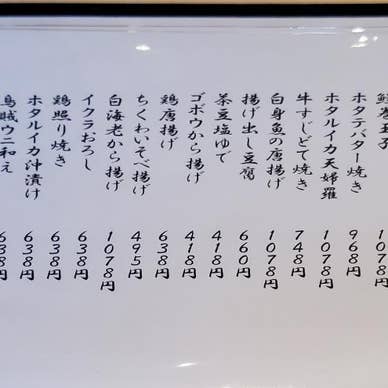 鰻巻玉子 1078円
ホタテバター焼き 968円
ホタルイカ天婦羅 1078円
牛すじどて焼き 748円
白身魚の唐揚げ 1078円
揚げ出し豆腐 660円
茶豆塩ゆで 418円
ゴボウから揚げ 418円
鶏唐揚げ 638円
ちくわいそべ揚げ 495円
白海老から揚げ 1078円
イクラおろし 638円
鶏照り焼き 638円
ホタルイカ沖漬け 638円
烏賊ウニ和え 638円